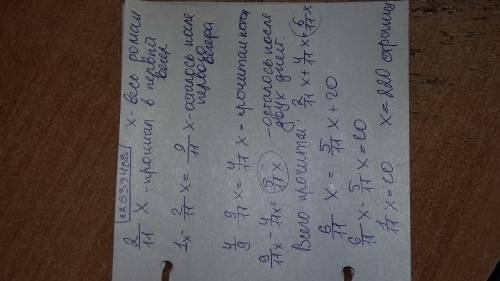 22539488
x - весь роман
2/11 x - прочитал в первый вечер
1x - 2/11 x = 9/11 x - осталось после первого вечера
4/9 · 9/11 x = 4/11 x = прочитал
9/11 x - 4/11 x = 5/11 x - осталось после двух дней.
Всего прочитал: 2/11 x + 4/11 x = 6/11 x
6/11 x = 5/11 x + 20
6/11 x - 5/11 x = 20
1/11 x = 20 x = 220 страниц